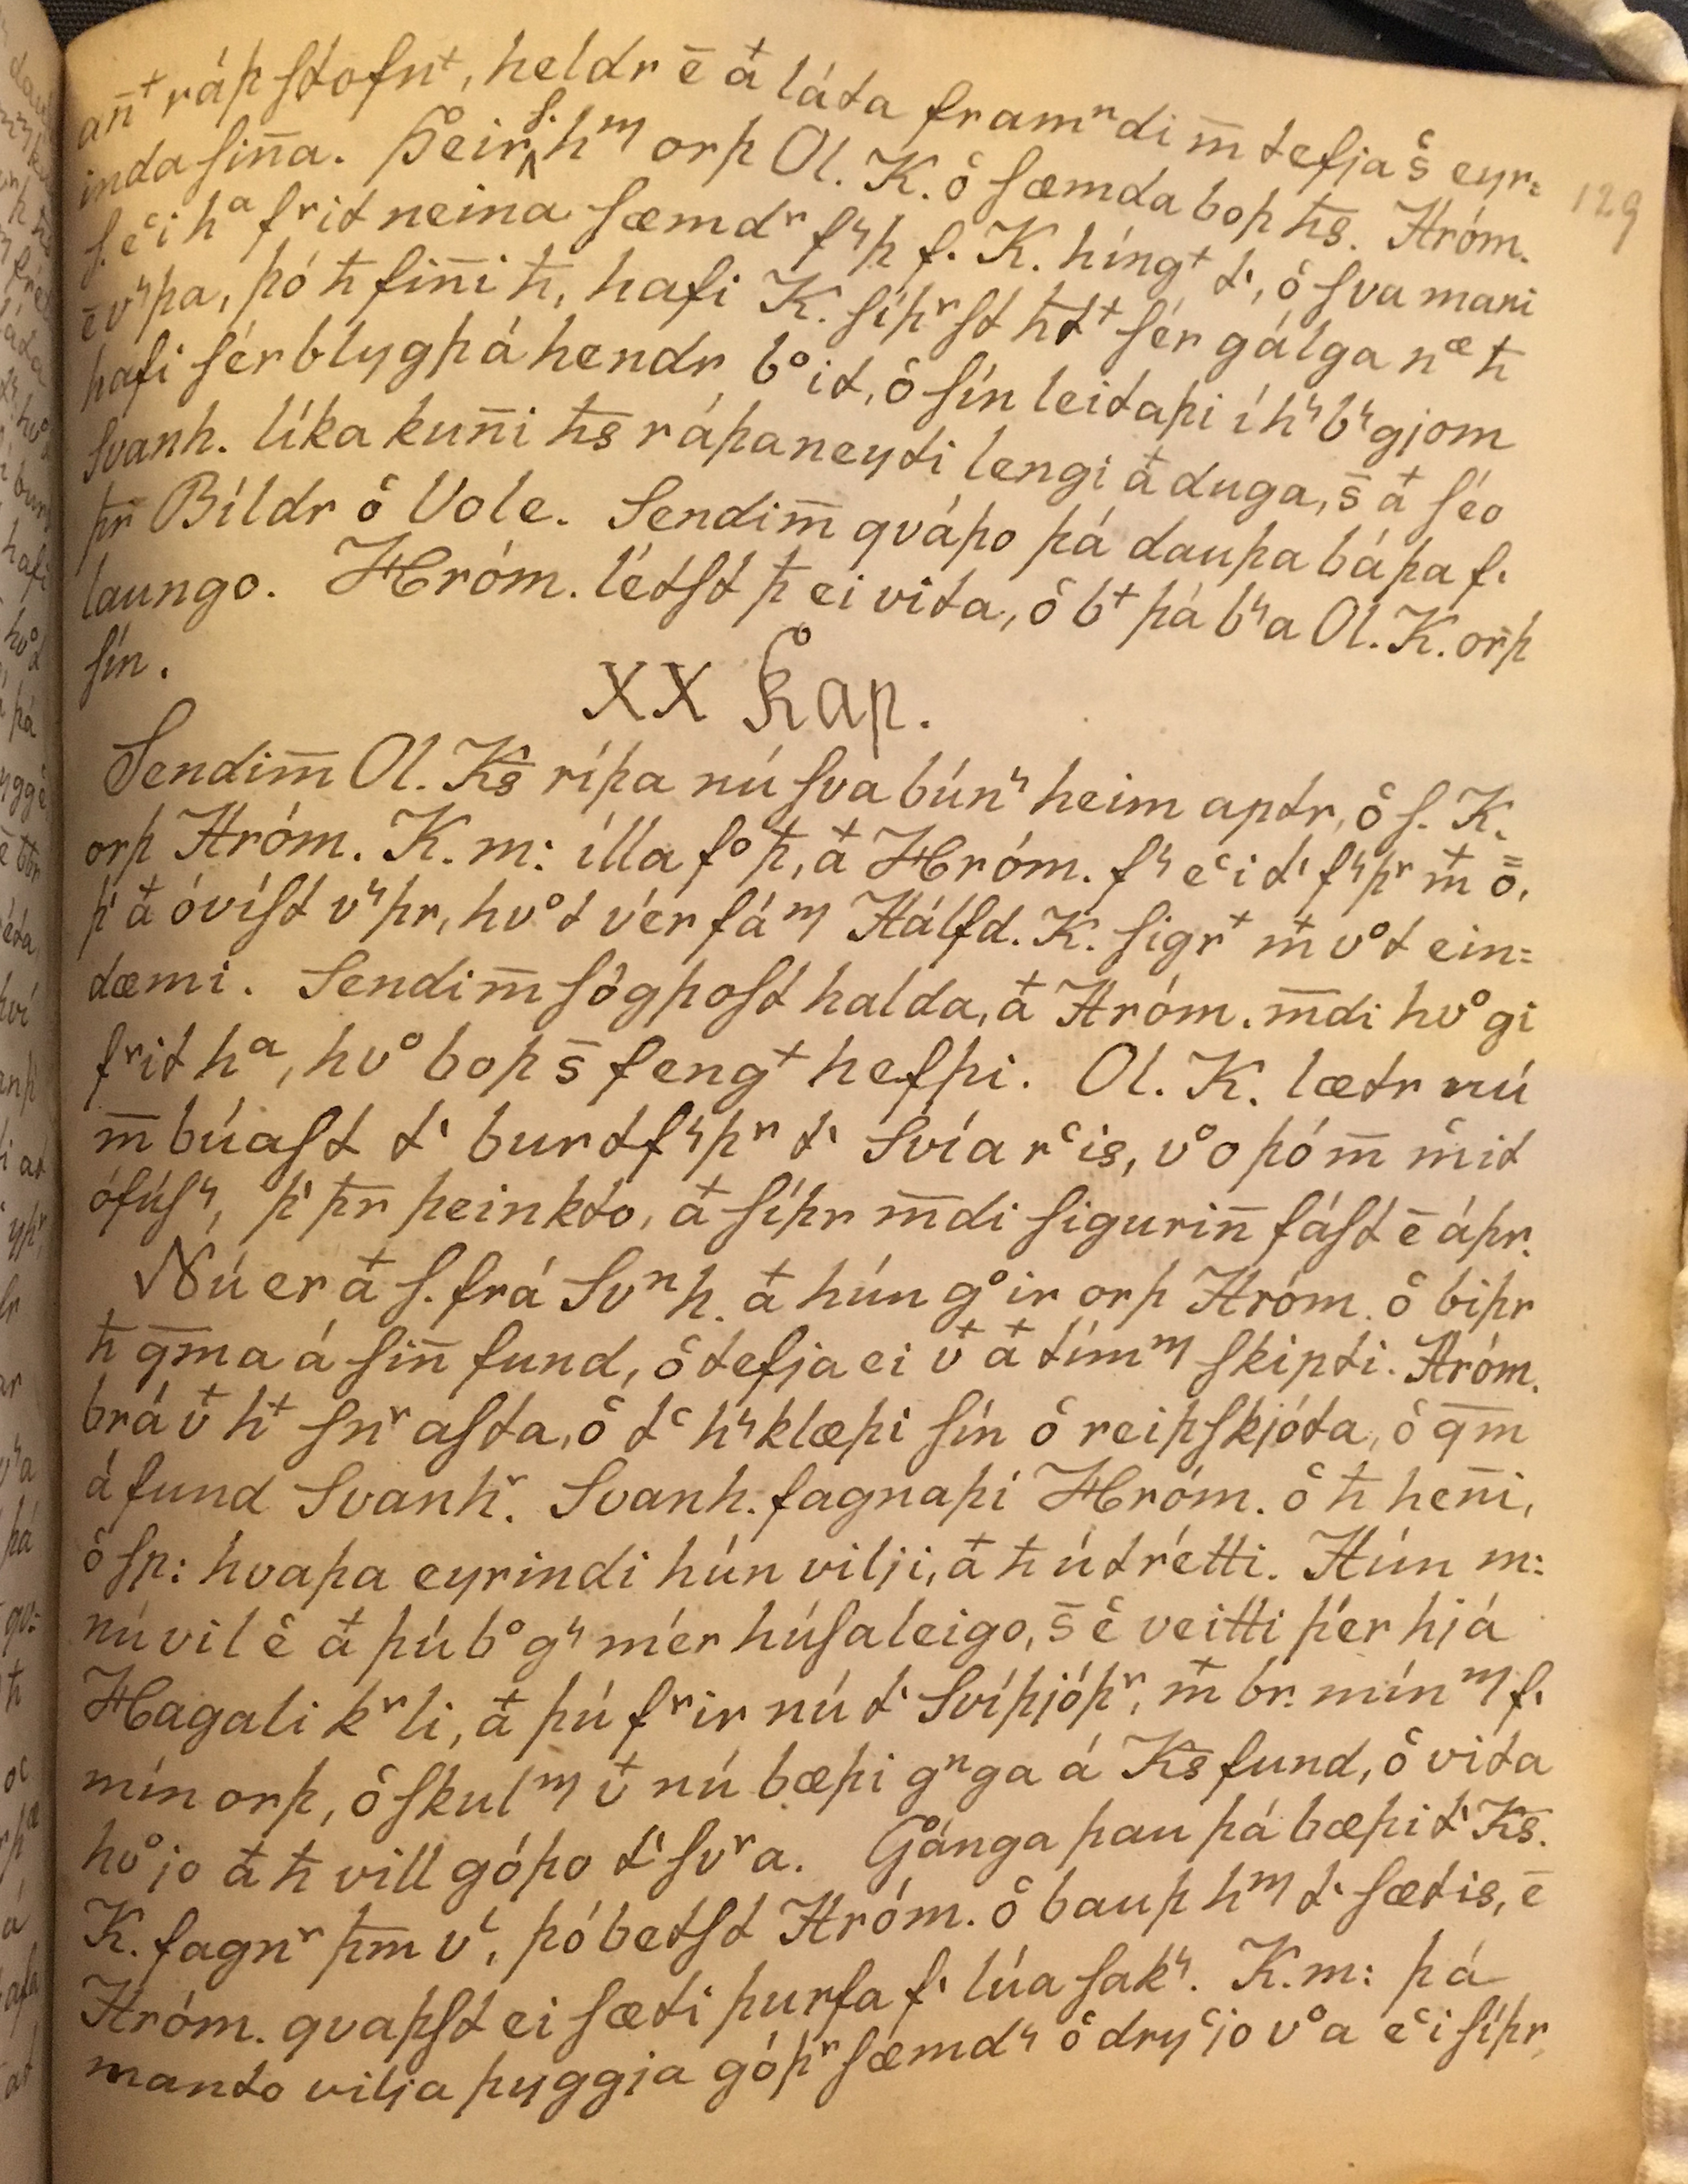 an̄⁺ ráþ stofn⁺, heldr ē a⁺ láta framⁿdi m̄ tefja s̄ eyr=
inda sin̄a. Þeir s. hᵐ orþ Ol. K. oͨ sæmda boþ h̄s. Hróm.
s. eͨi hᵃ fʳit neina sæmdʳ fʳþ f. K. híng⁺ t͛, oͨ sva mani
ē vʳþa, þó h̄ fin̄i h̄, hafi K. síþʳst h̄t⁺ sér gálga nᵆ h̄
hafi sér blygþ á hendr bᵒit, oͨ sín leitaþi í hʳbʳgjom
Svanh. líka kun̄i h̄s ráþaneyti lengi a⁺ duga, s̄ a⁺ séo
þr̄ Bíldr oͨ Vole. Sendim̄ qváþo þá dauþa báþa f.
laungo. Hróm. létst þ̄ ei vita, oͨ b⁺ þá bʳa Ol. K. orþ
sín.
XX Kap.
Sendim̄ Ol. K̄s ríþa nú sva búnʳ heim aptr, oͨ s. K.
orþ Hróm. K. m: ílla fᵒ þ̄, a⁺ Hróm. fʳ eͨi t͛ fʳþʳ m⁺ o̿,
þ͛ a⁺ óvíst vʳþr, hvᵒt vér fáᵐ Hálfd. K. sigr⁺ m⁺ vᵒt ein=
dæmi. Sendim̄ sögþost halda, a⁺ Hróm. m̄di hvᵒgi
fʳit hᵃ, hvᵒ boþ s̄ feng⁺ hefþi. Ol. K. lætr nú
m̄ búast t͛ burtfʳþʳ t͛ Svíarͨis, vᵒo þó m̄ mͨit
ófúsʳ, þ͛ þr̄ þeinkto, a⁺ síþr m̄di sigurin̄ fást ē áþr.
Nú er a⁺ s. frá Svⁿh. a⁺ hún gᵒir orþ Hróm. oͨ biþr
h̄ qm̄a á sin̄ fund, oͨ tefja ei v⁺ a⁺ tímᵐ skipti. Hróm.
brá v⁺ h⁺ snʳasta, oͨ tͨ hʳklæþi sín oͨ reiþskjóta, oͨ qm̄
á fund Svanhʳ. Svanh. fagnaþi Hróm. oͨ h̄ hen̄i,
oͨ sp: hvaþa eyrindi hún vilji, a⁺ h̄ útrétti. Hún m:
nú vil eͨ a⁺ þú bᵒgʳ mér húsaleigo, s̄ eͨ veitti þér hjá
Hagali kʳli, a⁺ þú fʳir nú t͛ Svíþjóþʳ, m⁺ br. mínᵐ f.
mín orþ, oͨ skulᵐ v⁺ nú bæþi gⁿga á K̄s fund, oͨ vita
hvᵒjo a⁺ h̄ vill góþo t͛ svʳa. Gánga þau þá bæþi t͛ K̄s.
K. fagnʳ þm̄ v͛, þó betst Hróm. oͨ bauþ hᵐ t͛ sætis, ē
Hróm. qvaþst ei sæti þurfa f. lúa sakʳ. K. m: þá
manto vilja þyggja góþʳ sæmdʳ oͨ dryͨjo vᵒa eͨi síþr,